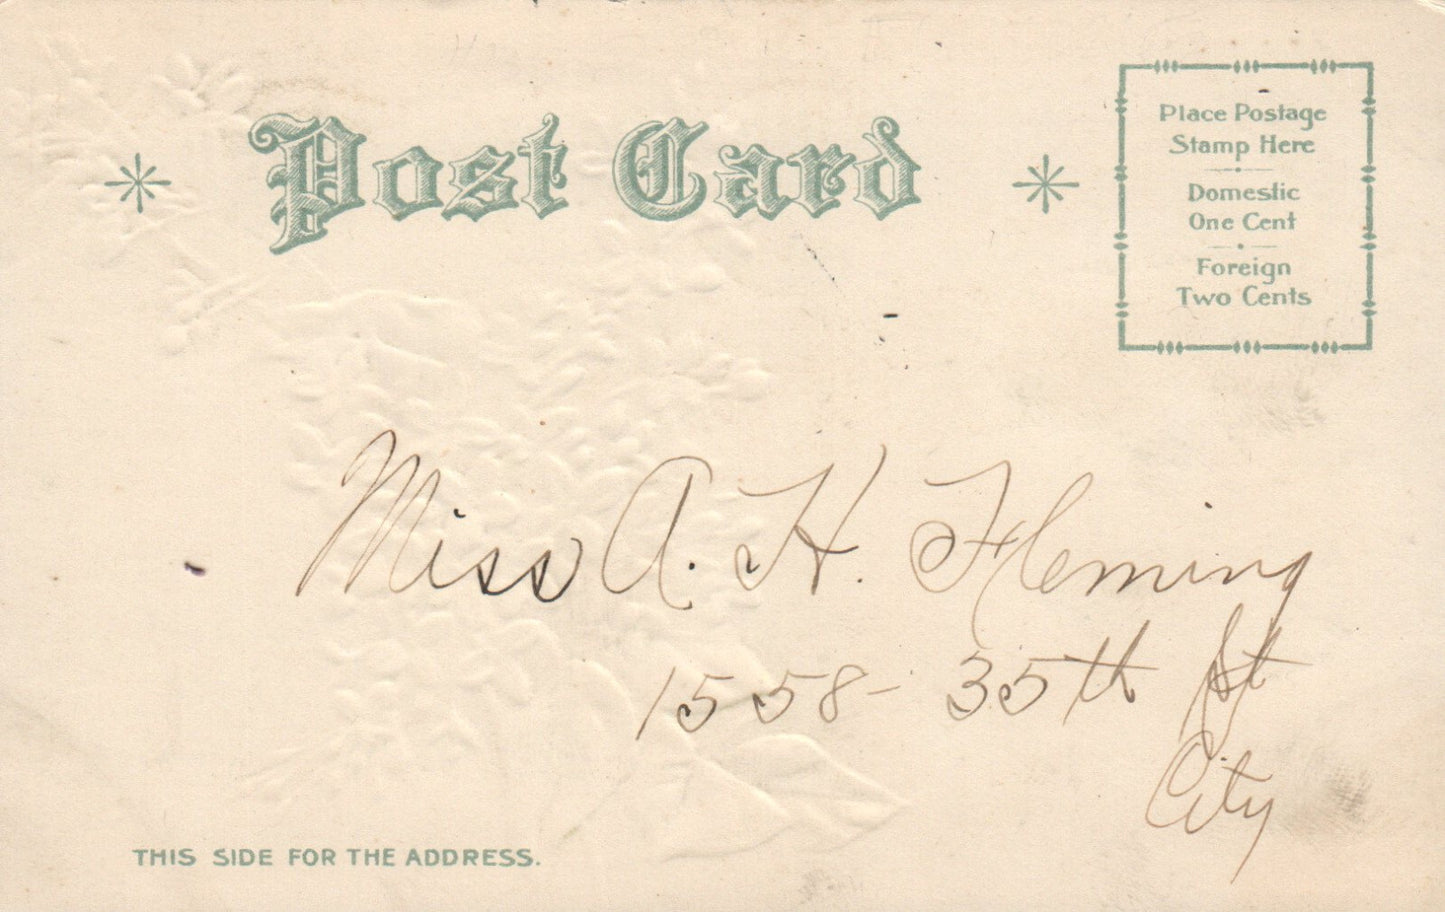 Post Card
Place Postage
Stamp Here
Domestic
One Cent
Foreign
Two Cents
Miss A. H. Fleming
1558- 35th St
City
THIS SIDE FOR THE ADDRESS.